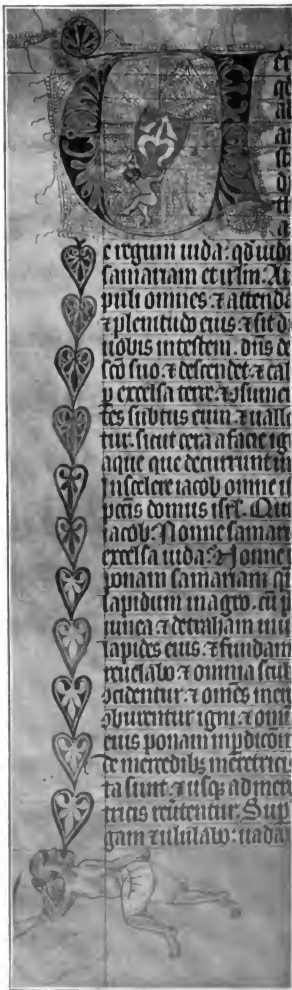 e regum iuda: qđ uidi
samariam et irlm. Au
puli omnes: ⁊ attenda
⁊ plenitudo eius. ⁊ sit d
uobis in testem. dn̄s de
sc̄o suo. ⁊ descendet. ⁊ cal
p excelsa terre. ⁊ ɔsumē
tes subtus eum. ⁊ ualle
tur. sicut cera a facie ign
aque que decurrunt in
In scelere iacob omne i
pctīs domus isrl. Qui
iacob: Nonne samari
excelsa iuda: Nonne i
ponam samariam q
lapidum in agro. cū p
uinea ⁊ detraham in u
lapides eius. ⁊ fundam
reuelabo. ⁊ omnia scul
ɔcidentur. ⁊ om̄es merc
ɔburentur igni. ⁊ omi
eius ponam in pdicōm
de mercedibꝫ meretricis
ta sunt. ⁊ usqꝫ ad mere
tricis reūtentur. Sup
gam ⁊ ululabo: uada